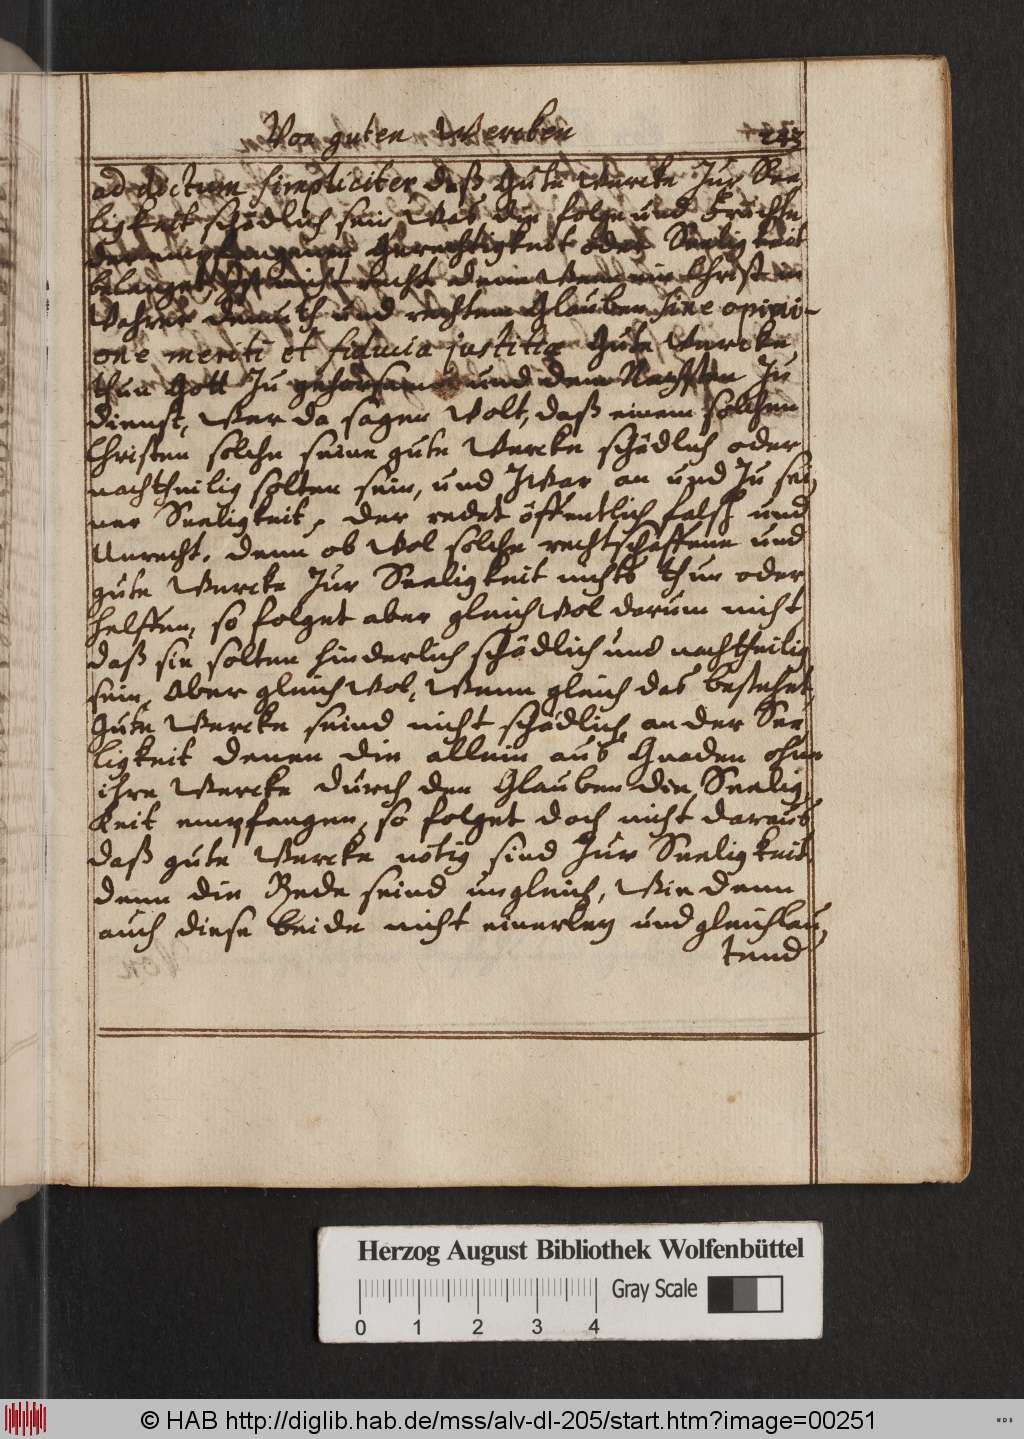 Von guten Wercken 223
ad dictum simpliciter, daß Gute Wercke Zur See,
ligkeit schädlich sein, Was die folge und Früchte
der empfangenen Gerechtigkeit oder Seeligkeit
belanget, ist nicht recht, denn Wenn ein Christ in
Wahrer demuth und rechtem Glauben sine opini-
one meriti et fiducia justitiæ Gute Wercke
thun Gott Zu gehorsam und dem Nechsten Zu
dienst, Wer da sagen Wolt, daß einem solchen
Christen solche seine gute Wercke schädlich oder
nachtheilig solten sein, und Zwar an und Zu sei,
ner Seeligkeit, der redet öffentlich falsch und
Unrecht, denn ob Wol solche rechtschaffene und
gute Wercke Zur Seeligkeit nichts thun oder
helffen, so folget aber gleich Wol darum nicht,
daß sie solten hinderlich schädlich und nachtheilig
sein, Aber gleich Wol, Wenn gleich das bestehet,
Gute Wercke seind nicht schädlich an der See,
ligkeit denen die allein aus Gnaden ohne
ihre Wercke durch den Glauben die Seelig,
Keit empfangen, so folget doch nicht daraus
daß gute Wercke nötig sind Zur Seeligkeit,
denn die Rede seind ungleich, Wie denn
auch diese beide nicht einerley und gleichlau,
tend
Herzog August Bibliothek Wolfenbüttel
0 1 2 3 4 Gray Scale
© HAB http://diglib.hab.de/mss/alv-dl-205/start.htm?image=00251